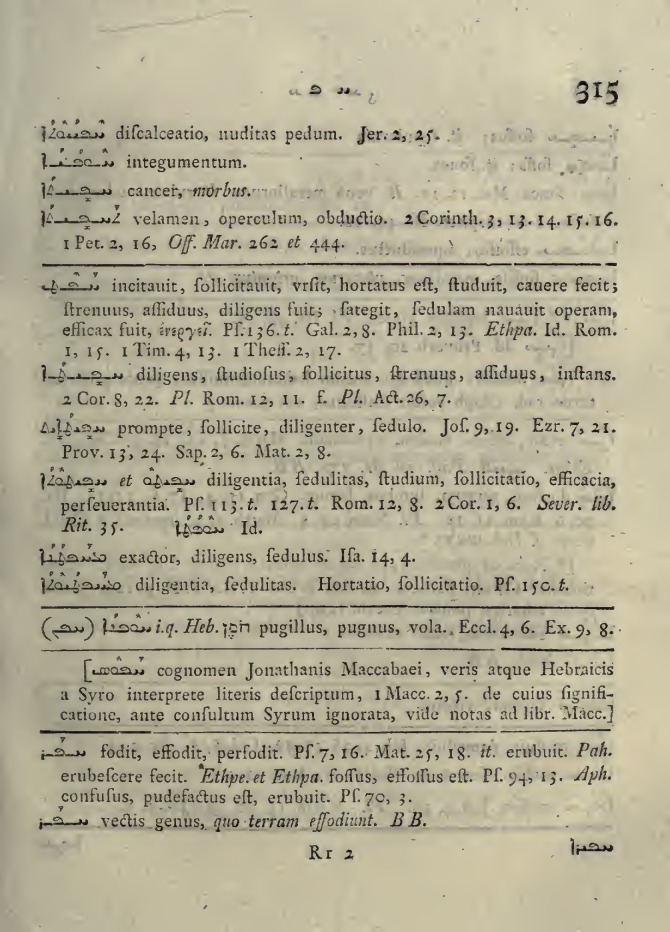 315
ܚܦܝܘܬܐ diſcalceatio, nuditas pedum. Jer. 2, 25.
ܚܘܦܝܐ integumentum.
ܚܦܝܬܐ cancer, morbus.
ܬܚܦܝܬܐ velamen, operculum, obductio. 2 Corinth. 3, 13. 14. 15. 16.
1 Pet. 2, 16, Off. Mar. 262 et 444.
ܚܦܛ incitauit, ſollicitauit, vrſit, hortatus eſt, ſtuduit, cauere fecit;
ſtrenuus, aſſiduus, diligens fuit; ſategit, ſedulam nauauit operam,
efficax fuit, ἐνεργεῖ. Pſ. 136. t. Gal. 2, 8. Phil. 2, 13. Ethpa. Id. Rom.
1, 15. 1 Tim. 4, 13. 1 Theſſ. 2, 17.
ܚܦܝܛܐ diligens, ſtudioſus, ſollicitus, ſtrenuus, aſſiduus, inſtans.
2 Cor. 8, 22. Pl. Rom. 12, 11. f. Pl. Act. 26, 7.
ܚܦܝܛܐܝܬ prompte, ſollicite, diligenter, ſedulo. Joſ. 9, 19. Ezr. 7, 21.
Prov. 13, 24. Sap. 2, 6. Mat. 2, 8.
ܚܦܝܛܘܬܐ et ܚܦܝܛܘ diligentia, ſedulitas, ſtudium, ſollicitatio, efficacia,
perſeuerantia. Pſ. 113. t. 127. t. Rom. 12, 8. 2 Cor. 1, 6. Sever. lib.
Rit. 35. ܚܘܦܛܐ Id.
ܡܚܦܛܢܐ exactor, diligens, ſedulus. Iſa. 14, 4.
ܡܚܦܛܢܘܬܐ diligentia, ſedulitas. Hortatio, ſollicitatio. Pſ. 150. t.
(ܚܦܢ) ܚܘܦܢܐ i. q. Heb. חפן pugillus, pugnus, vola. Eccl. 4, 6. Ex. 9, 8.
[ܚܦܘܣ cognomen Jonathanis Maccabaei, veris atque Hebraicis
a Syro interprete literis deſcriptum, 1 Macc. 2, 5. de cuius ſignifi-
catione, ante conſultum Syrum ignorata, vide notas ad libr. Macc.]
ܚܦܪ fodit, effodit, perfodit. Pſ. 7, 16. Mat. 25, 18. it. erubuit. Pah.
erubeſcere fecit. Ethpe. et Ethpa. foſſus, effoſſus eſt. Pſ. 94, 13. Aph.
confuſus, pudefactus eſt, erubuit. Pſ. 70, 3.
ܚܦܪ vectis genus, quo terram effodiunt. B B.
Rr 2 ܚܦܪܐ